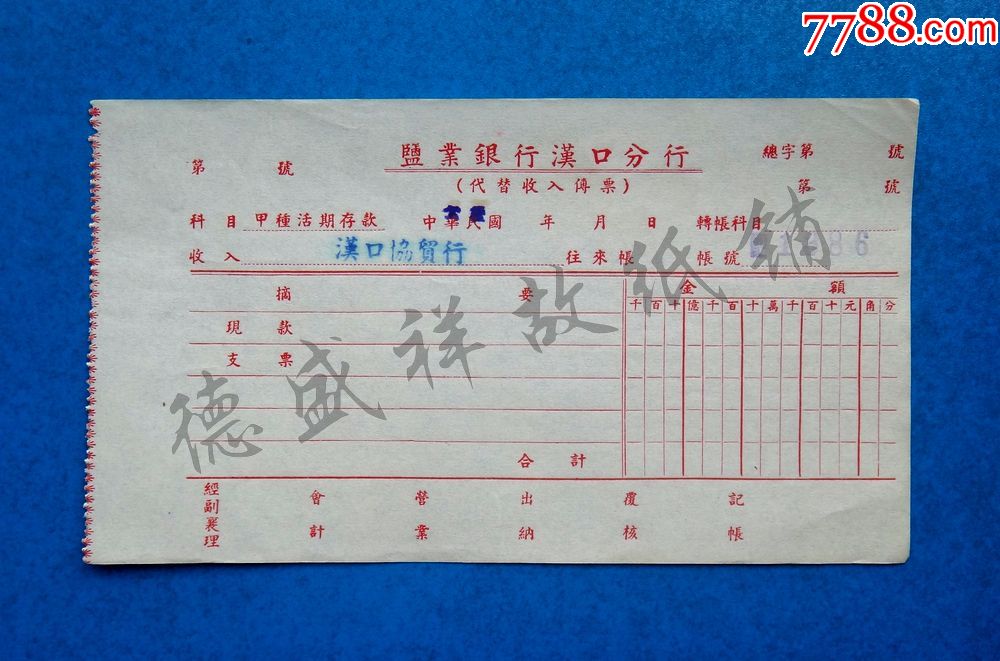 7788.com
鹽業銀行漢口分行
(代替收入傳票)
第 號
總字第 號
第 號
科目 甲種活期存款 中華民國 年 月 日 轉帳科目
收入 漢口協貿行 往來帳 帳號
摘要 金額
千百十億千百十萬千百十元角分
現款
支票
合計
經副襄理 會計 營業 出納 覆核 記帳
德盛祥故紙鋪